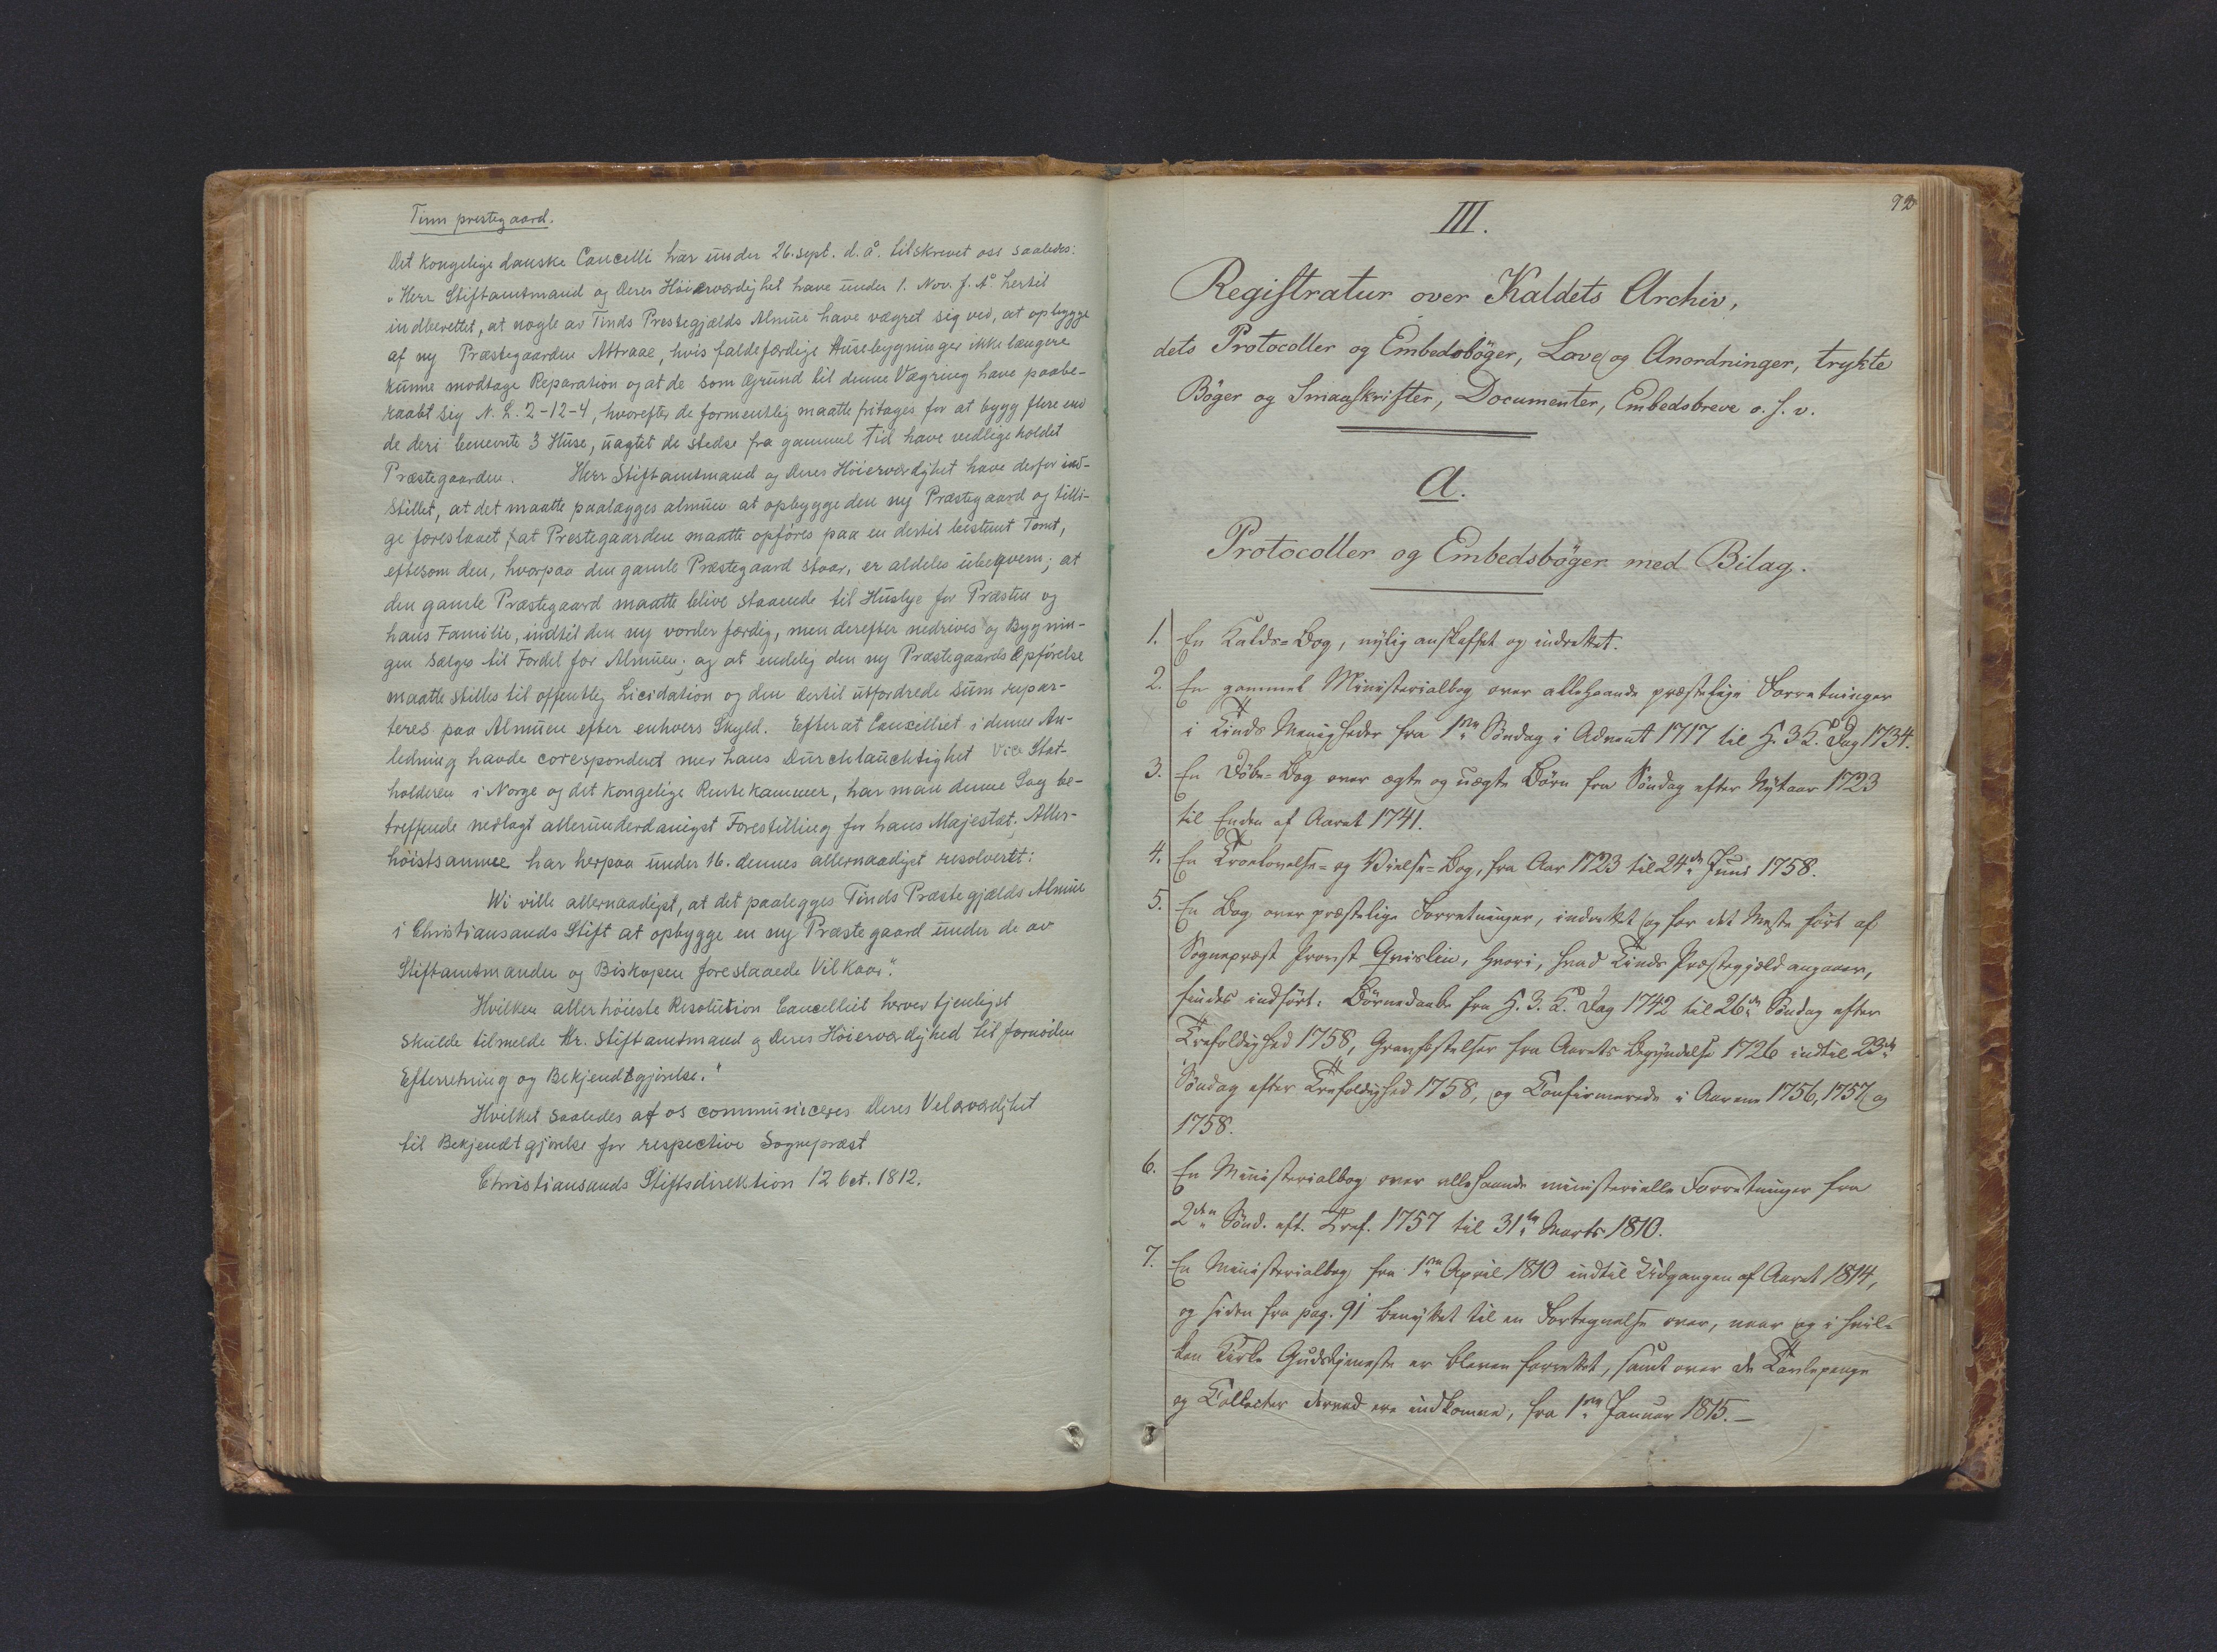 Tinn prestegaard.
Det kongelige danske Cancelli har under 26. sept. d. å. tilskrevet oss saaledes:
„Herr Stiftamtmand og Deres Høierværdighet have under 1. Nov. f. A° hertil
indberettet, at nogle av Tinds Prestegjælds Almue have vægret sig ved, at opbygge
af ny Præstegaarden Attraae, hvis faldefærdige Husebygninger ikke længere
kunne modtage Reparation og at de som Grund til denne Vægring have paabe-
raabt sig N. L. 2-12-4, hvorefter de formentlig maatte fritages for at bygg flere end
de deri benevnte 3 Huse, uagtet de stedse fra gammel Tid have vedligeholdet
Præstegaarden. Herr Stiftamtmand og Deres Høierværdighet have derfor ind-
stillet, at det maatte paalægges almuen at opbygge den ny Præstegaard og tilli-
ge foreslaaet, at Prestegaarden maatte opføres paa en dertil bestemt Tomt,
eftesom den, hvorpaa den gamle Præstegaard staar, er aldeles ubeqvem; at
den gamle Præstegaard maatte blive staaende til Huslye for Præsten og
hans Familie, indtil den ny vorder færdig, men derefter nedrives og Bygnin-
gen sælges til Fordel for Almuen; og at endelig den ny Præstegaards Opførelse
maatte stilles til offentlig Licidation og den dertil utfordrede Sum repar-
teres paa Almuen efter enhvers Skyld. Efterat Cancelliet i denne An-
ledning havde coresponderet mer hans Durchlauchtighet Vice Stat-
holderen i Norge og det kongelige Rentekammer, har man denne Sag be-
treffende nedlagt allerunderdanigst Forestilling for hans Majestæt. Aller-
høistsamme har herpaa under 16. dennes allernaadigst resolvertt:
Wi ville allernaadigst, at det paalegges Tinds Præstegjælds Almue
i Christiansands Stift at opbygge en ny Præstegaard under de av
Stiftamtmanden og Biskopen foreslaaede Vilkaar".
Hvilken allerhøieste Resolution Cancelliet herved tjenligst
skulde tilmelde Hr. Stiftamtmand og Deres Høierværdighed til fornøden
Efterretning og Bekjendtgjørelse."
Hvilket saaledes af os communiceres Deres Velærværdighet
til Bekjendtgjørelse for respective Sognepræst
Christiansands Stiftsdirektion 12 Oct. 1812.
92
III.
Registratur over Kaldets Archiv,
dets Protocoller og Embedsbøger, Love og Anordninger, trykte
Bøger og Smaaskrifter, Documenter, Embedsbreve o. s. v.
A.
Protocoller og Embedsbøger med Bilag.
1. En Kalds=Bog, nylig anskaffet og indrettet.
2. En gammel Ministerialbog over allehaande præstelige Forretninger
i Tinds Menigheder fra 1ste Søndag i Advent 1717 til H. 3 K. Dag 1734.
3. En Døbe=Bog over ægte og uægte Børn fra Søndag efter Nytaar 1723
til Enden af Aaret 1741.
4. En Trolovelse= og Vielse=Bog, fra Aar 1723 til 24de Juni 1758.
5. En Bog over præstelige Forretninger, indrettet og for det Meste ført af
Sognepræst Provst Qvislin, hvori, hvad Tinds Præstegjæld angaaer,
findes indført: Børnedaabe fra H. 3. K. Dag 1742 til 26de Søndag efter
Trefoldighed 1758, Gravfæstelser fra Aarets Begyndelse 1726 indtil 23de
Søndag efter Trefoldighed 1758, og Confirmerede i Aarene 1756, 1757 og
1758.
6. En Ministerialbog over allehaande ministerielle Forretninger fra
2den Sønd. eft. Tref. 1757 til 31te Marts 1810.
7. En Ministerialbog fra 1ste April 1810 indtil Udgangen af Aaret 1814,
og siden fra pag. 91 benyttet til en Fortegnelse over, naar og i hvil=
ken Kirke Gudstjeneste er bleven forrettet, samt over de Tavlepenge
og Collecter derved ere indkomne, fra 1ste Januar 1815. —